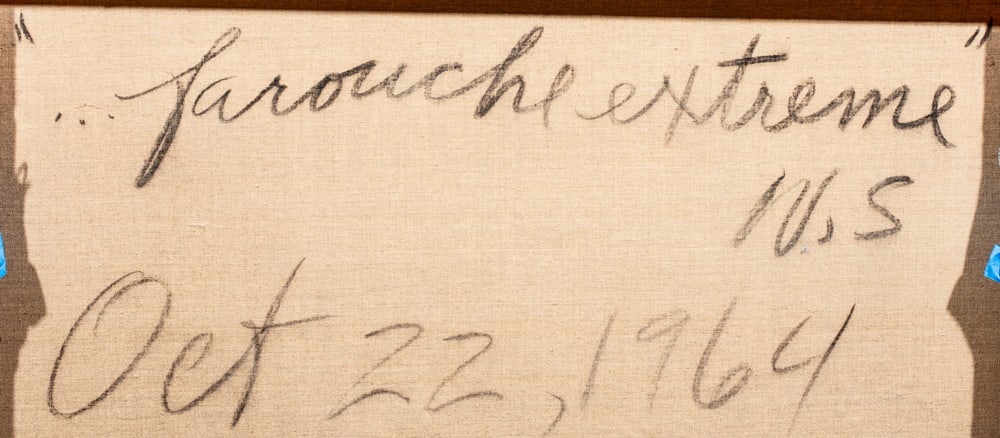 "... farouche extreme"
N.S
Oct 22, 1964